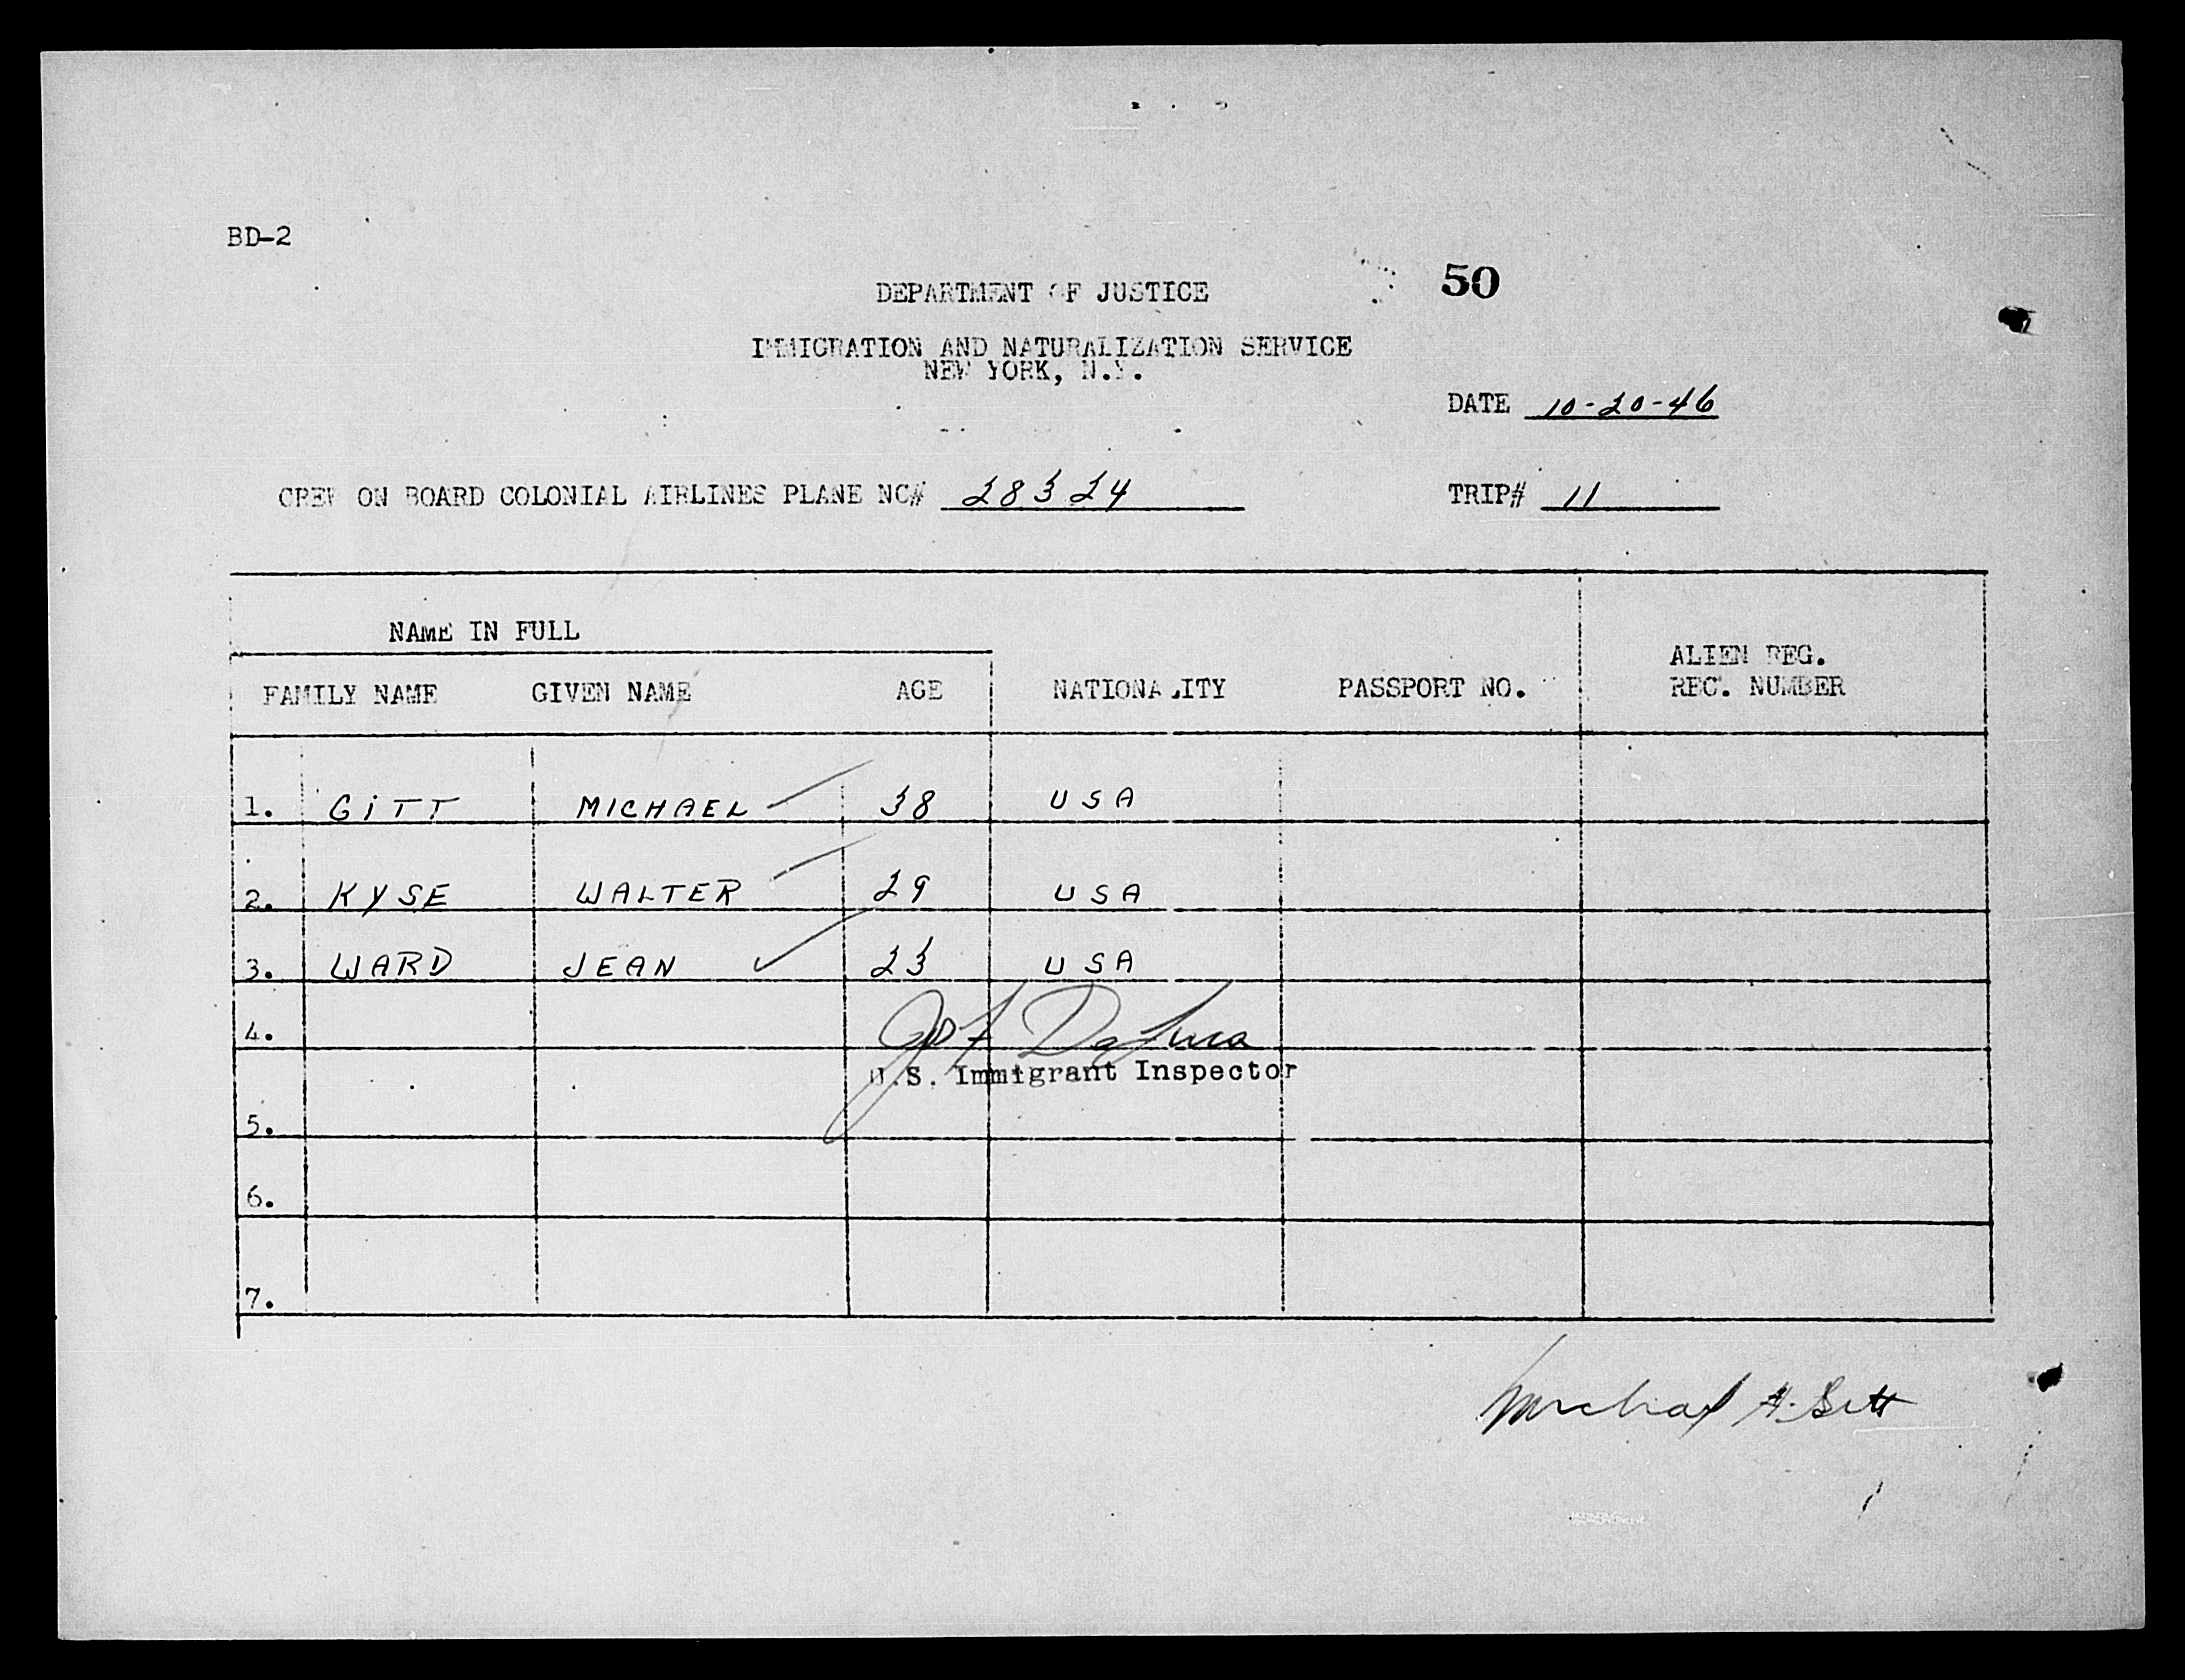 BD-2
50
DEPARTMENT OF JUSTICE
IMMIGRATION AND NATURALIZATION SERVICE
NEW YORK, N.Y.
DATE 10-20-46
CREW ON BOARD COLONIAL AIRLINES PLANE NC# 28324 TRIP# 11
NAME IN FULL
FAMILY NAME GIVEN NAME AGE NATIONALITY PASSPORT NO. ALIEN REG. REC. NUMBER
1. GITT MICHAEL 38 USA
2. KYSE WALTER 29 USA
3. WARD JEAN 23 USA
4. DeLuca
U.S. Immigrant Inspector
5.
6.
7.
Michael A. Gitt